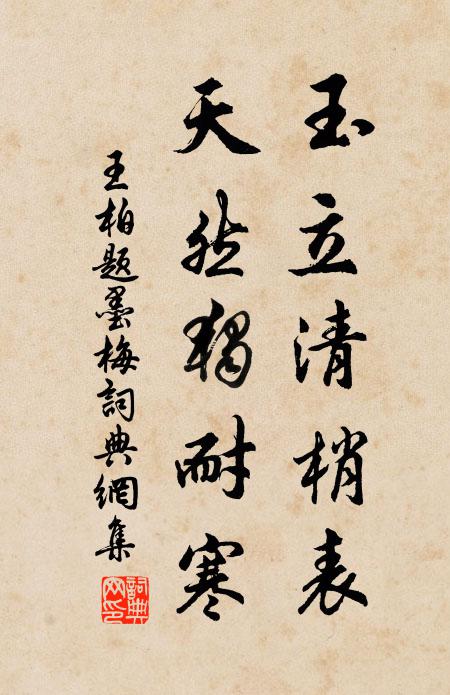 玉立清梢表
天然獨耐寒
王柏題墨梅詞典網集
詞典网印